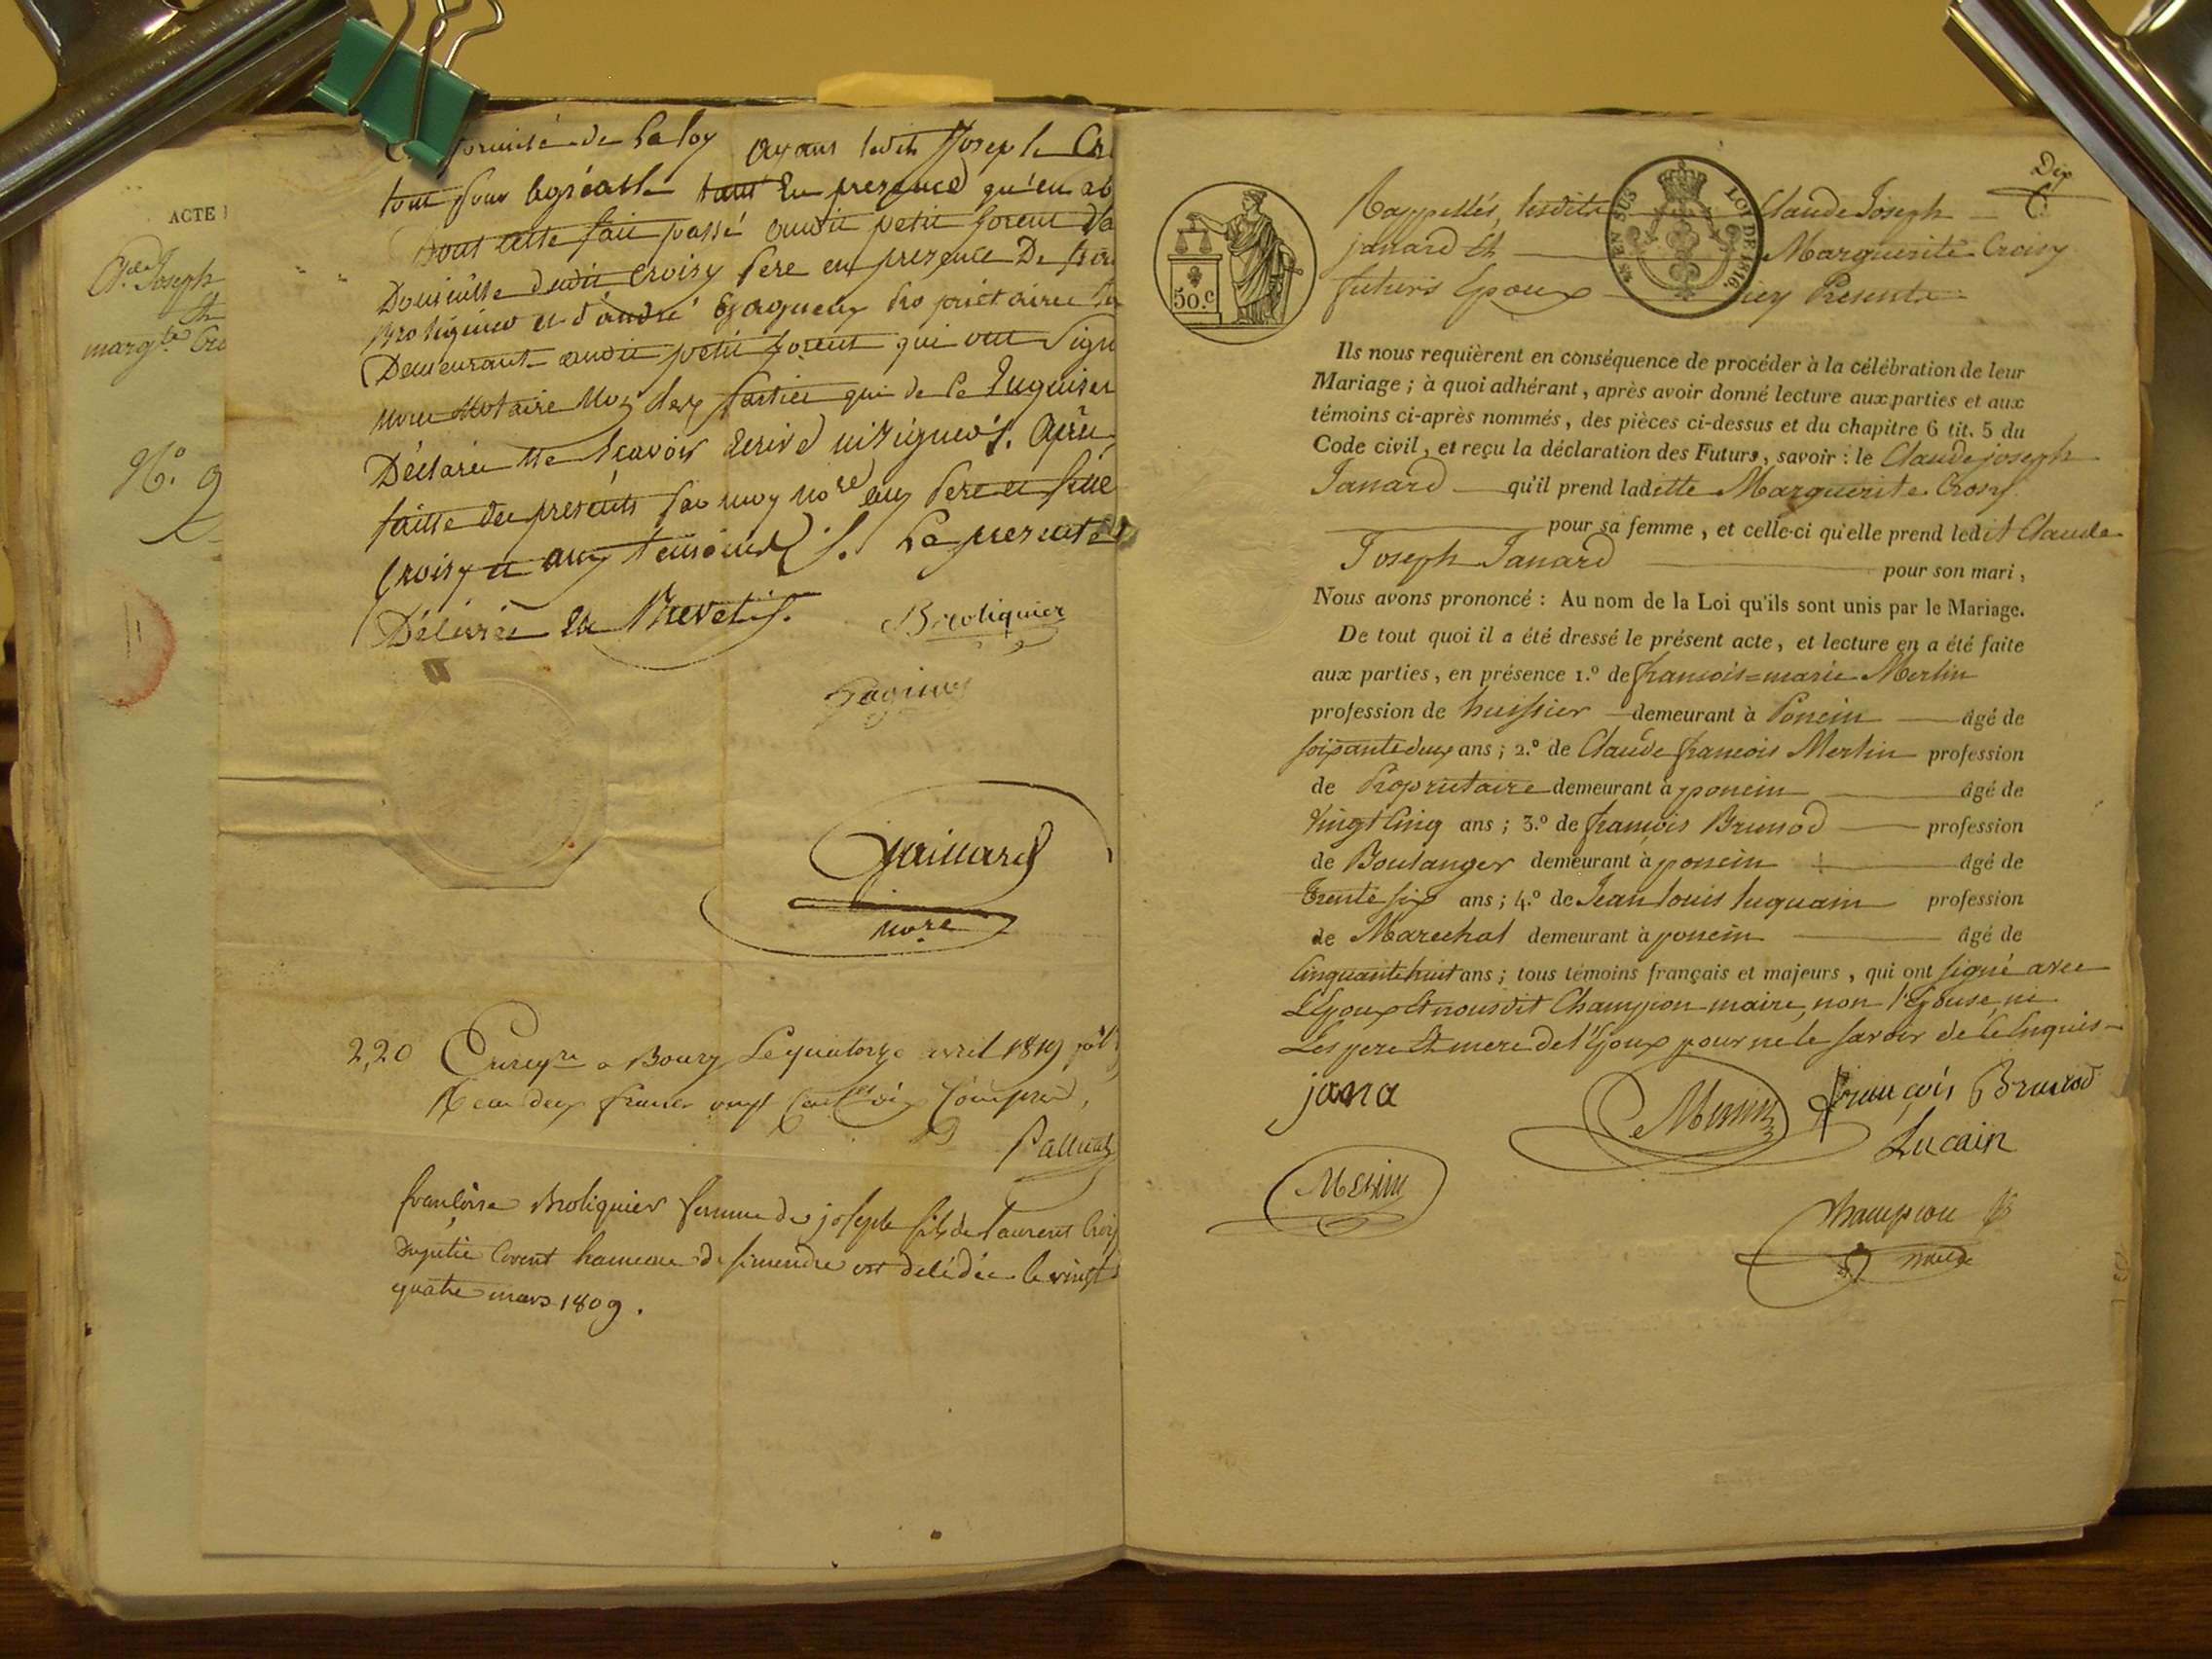 ACTE
Cl.de Joseph
et
marg.te Cro
N.o 9
de la loy ayant ledit Joseph Cr
tout pour agréable tant en presence qu'en ab
Dont acte fait passé audit petit Corent da
Domicille dudit Croisy Pere en presence De
Broliquier et d'andré propriétaires
Demeurant audit petit Corent qui ont Signé
nous Notaire Non les parties qui de ce Enquises
Déclaré ne Scavoir Ecrire ni signer. après
faitte des presents par moy no.re aux Pere et fille
Croisy et aux temoins. La presente
Délivrée En Brevet.
Broliquier
Gaillard
no.re
2,20 Enreg.re a Bourg Le quatorze avril 1819
Reçu deux francs vingt Cent.es dix.e Compris,
francoise Broliquier femme de joseph fils de Laurent Croisy
Dupetit Corent hameau de simandre est décédée le vingt
quatre mars 1809.
Dix
50.c
25 EN SUS LOI DE 1816.
Rappellés, lesdits Claude Joseph
janard et Marguerite Croisy
futurs Epoux icy Presents
Ils nous requièrent en conséquence de procéder à la célébration de leur
Mariage ; à quoi adhérant, après avoir donné lecture aux parties et aux
témoins ci-après nommés, des pièces ci-dessus et du chapitre 6 tit. 5 du
Code civil, et reçu la déclaration des Futurs, savoir : le Claude joseph
Janard qu'il prend laditte Marguerite Crosy
pour sa femme, et celle-ci qu'elle prend ledit Claude
Joseph Janard pour son mari,
Nous avons prononcé : Au nom de la Loi qu'ils sont unis par le Mariage.
De tout quoi il a été dressé le présent acte, et lecture en a été faite
aux parties, en présence 1.º de francois=marie Merlin
profession de huissier demeurant à Poncin âgé de
soixante deux ans ; 2.º de Claude francois Merlin profession
de Propriétaire demeurant à poncin âgé de
Vingt Cinq ans ; 3.º de francois Brunod profession
de Boulanger demeurant à poncin âgé de
Trente six ans ; 4.º de Jean Louis luquain profession
de Marechal demeurant à poncin âgé de
Cinquante huit ans ; tous témoins français et majeurs, qui ont signé avec
L'Epoux et nousdit Champion maire, non l'Epouse, ni
Les pere et mere de l'Epoux pour ne le savoir de ce Enquis
jana
Merlin
François Brunod
Lucain
Merlin
Champion
maire